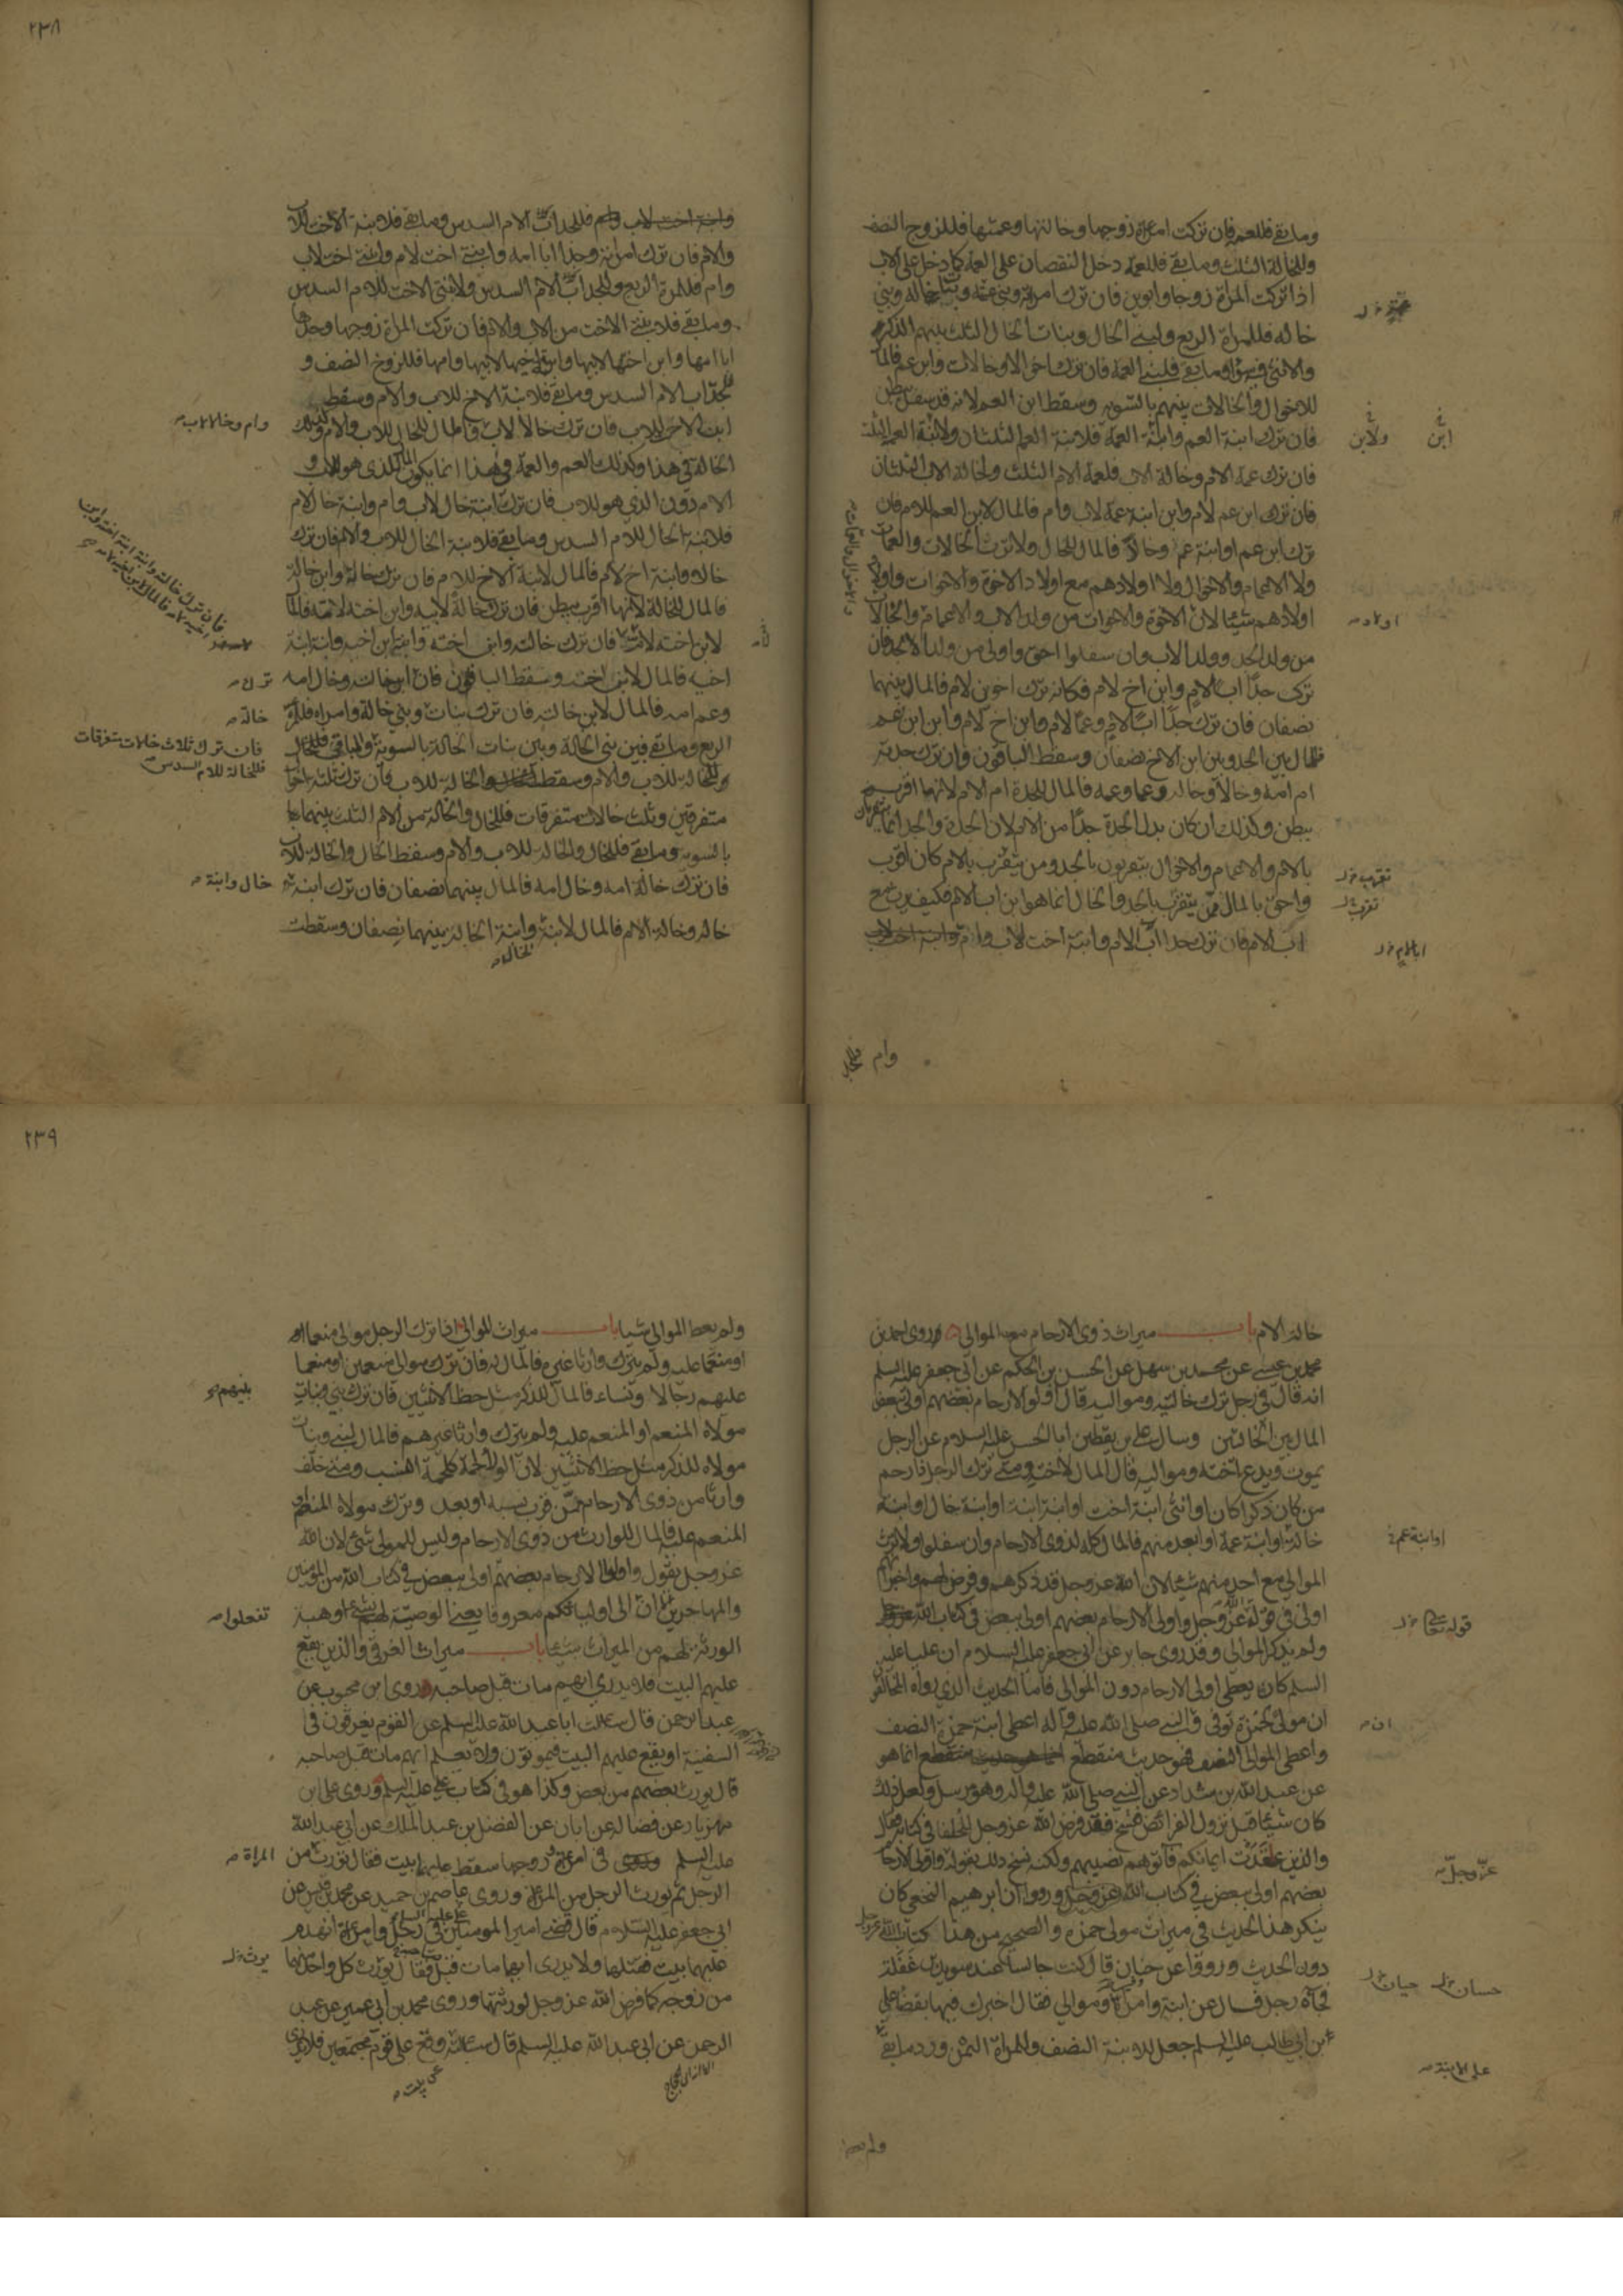 وما بقي فللعم فان تركت امراة زوجها وخالتها وعمتها فللزوج النصف
وللخالة الثلث وما بقي فللعمة دخل النقصان على العمة كما دخل على الاب
اذا تركت المراة زوجا وابوين فان ترك امراته وبني عمة وبنات خالة وبني
خاله فللمراة الربع ولبني الخال وبنات الخال الثلث بينهم الذكر
والانثى فيه سواء وما بقي فلبني العمة فان ترك اخوالا وخالات وابن عم فالمال
للاخوال والخالات بينهم بالسوية وسقط ابن العم لانه قد سفل ببطن
فان ترك ابنة العم وابنة العمة فلابنة العم الثلثان ولابنة العمة الثلث
فان ترك عمة الام وخالة الاب فلعمة الام الثلث ولخالة الاب الثلثان
فان ترك ابن عم لام وابن ابنة عمة لاب وام فالمال لابن العم للام فان
ترك ابن عم او ابنة عم وخالا فالمال للخال ولا ترث الخالات والعمات
ولا الاعمام والاخوال ولا اولادهم مع اولاد الاخوة والاخوات واولاد
اولادهم شيئا لان الاخوة والاخوات من ولد الاب والاعمام والخالات
من ولد الجد وولد الاب وان سفلوا احق واولى من ولد الجد فان
ترك جدا اب الام وابن اخ لام فكانه ترك اخوين لام فالمال بينهما
نصفان فان ترك جدا اب الام وعما لام وابن اخ لام وابن ابن عم
فالمال بين الجد وبين ابن الاخ نصفان وسقط الباقون وان ترك جدته
ام امه وخالا وخاله وعما وعمه فالمال للجدة ام الام لانها اقرب
ببطن وكذلك ان كان بدل الجدة جدا من الام لان الجدة والجد انما يتقربان
بالام والاعمام والاخوال يتقربون بالجد ومن يتقرب بالام كان اقرب
واحق بالمال ممن يتقرب بالجد والخال انما هو ابن اب الام فكيف يرث مع
اب الام فان ترك جدا اب الام وابنة اخت لاب وام وابنة اخت لاب
اولاد
وام
وابنة اخت لاب وام فللجد اب الام السدس وما بقي فلابنة الاخت للاب
والام فان ترك امراته وجدا ابا امه وابنتي اخت لام وابنتي اخت لاب
وام فللمراة الربع وللجد اب الام السدس ولابنتي الاخت للام السدس
وما بقي فلابنتي الاخت من الاب والام فان تركت المراة زوجها وجدها
ابا امها وابن اختها لابيها وابنة اخيها لابيها وامها فللزوج النصف و
للجد اب الام السدس وما بقي فلابنة الاخ للاب والام وسقط
ابن الاخ للاب فان ترك خالا لاب فالمال للخال للاب والام وكذلك
وام وخالا لاب
الخالة في هذا وكذلك العم والعمة في هذا انما يكون المال للذي هو للاب و
الام دون الذي هو للاب فان ترك ابنة خال لاب وام وابنة خال لام
فلابنة الخال للام السدس وما بقي فلابنة الخال للاب والام فان ترك
خاله وابنة اخ لام فالمال لابنة الاخ للام فان ترك خالة وابن خالة
فالمال للخالة لانها اقرب ببطن فان ترك خالة لابيه وابن اخته لامه فالمال
لابن اخته لامه فان ترك خالته وابن اخته وابنة ابن اخيه وابنة ابنة
اخيه فالمال لابن اخته وسقط الباقون فان ابن خالته وخال امه
ترك
وعم امه فالمال لابن خالته فان ترك بنات وبني خالة وامراه فللمراة
خالة
الربع وما بقي فبين بني الخالة وبين بنات الخالة بالسوية
فان ترك ثلاث خالات متفرقات
فللخالة للام السدس
والباقي للخالة للاب والام وسقط الخالة للاب فان ترك ثلثة اخوال
متفرقين وثلث خالات متفرقات فللخال والخالة من الام الثلث بينهما
بالسوية وما بقي فللخال والخالة للاب والام وسقط الخال والخالة للاب
فان ترك خالة امه وخال امه فالمال بينهما نصفان فان ترك ابنة
خال وابنة
خاله وخالة الام فالمال لابنة وابنة الخالة بينهما نصفان وسقطت
الخال
٢٣٨
خالة الام باب ميراث ذوي الارحام مع الموالي روى احمد بن
محمد بن عيسى عن محمد بن سهل عن الحسن بن الحكم عن ابي جعفر عليه السلم
انه قال في رجل ترك خالتيه ومواليه قال اولو الارحام بعضهم اولى ببعض
المال بين الخالتين وسال علي بن يقطين ابا الحسن عليه السلام عن الرجل
يموت ويدع اخته ومواليه قال المال لاخته ومتى ترك الرجل ذا رحم
من كان ذكرا كان او انثى ابنة اخت او ابنة ابنة او ابنة خال او ابنة
خالة او ابنة عمة او ابعد منهم فالمال كله لذوي الارحام وان سفلوا ولا يرث
او ابنة عم
الموالي مع احد منهم شيئا لان الله عز وجل قد ذكرهم وفرض لهم واخبر انهم
اولى في قوله عز وجل واولوا الارحام بعضهم اولى ببعض في كتاب الله
قوله تعالى
ولم يذكر الموالي وقد روى جابر عن ابي جعفر عليه السلام ان عليا عليه
السلم كان يعطي اولي الارحام دون الموالي فاما الحديث الذي رواه المخالفون
ان مولى لحمزة توفي وان النبي صلى الله عليه وآله اعطى ابنة حمزة النصف
واعطى الموالي النصف فهو حديث منقطع انما هو حديث منقطع انما هو
عن عبد الله بن شداد عن النبي صلى الله عليه واله وهو مرسل ولعل ذلك
كان شيئا قبل نزول الفرائض فنسخ فقد فرض الله عز وجل للحلفا في كتابه فقال
والذين عقدت ايمانكم فآتوهم نصيبهم ولكنه نسخ ذلك بقوله واولوا الارحام
عز وجل
بعضهم اولى ببعض في كتاب الله عز وجل ورووا ان ابرهيم النخعي كان
ينكر هذا الحديث في ميراث مولى حمزه والصحيح من هذا كتاب الله عز وجل
دون الحديث ورووا عن حنان قال كنت جالسا عند سويد بن غفلة
حسان حيان
فجاءه رجل فسال عن ابنة وامراة وموالي فقال اخبرك فيها بقضاء علي
بن ابي طالب عليه السلم جعل للابنة النصف وللمراة الثمن ورد ما بقي
على الابنة
ولم يعط
ولم يعط الموالي شيئا باب ميراث الموالي اذا ترك الرجل مولى منعما او
او منعما عليه ولم يترك وارثا غيره فالمال له فان ترك موالي منعمين او منعما
عليهم رجالا ونساء فالمال للذكر مثل حظ الانثيين فان ترك بني وبنات
بينهم
مولاه المنعم او المنعم عليه ولم يترك وارثا غيرهم فالمال لبني وبنات
مولاه للذكر مثل حظ الانثيين لان الولاء لحمة كلحمة النسب ومتى خلف
وارثا من ذوي الارحام ممن قرب نسبه او بعد وترك مولاه المنعم او
المنعم عليه فالمال للوارث من ذوي الارحام وليس للمولى شئ لان الله
عز وجل يقول واولوا الارحام بعضهم اولى ببعض في كتاب الله من المؤمنين
والمهاجرين الا ان الى اوليائكم معروفا يعني الوصية لهم بشئ او هبة
تفعلوا
الورثة لهم من الميراث شيئا باب ميراث الغرقى والذين يقع
عليهم البيت فلا يدرى ايهم مات قبل صاحبه روى ابن محبوب عن
عبد الرحمن قال سالت ابا عبد الله عليه السلم عن القوم يغرقون في
السفينة او يقع عليهم البيت فيموتون ولا يعلم ايهم مات قبل صاحبه
قال يورث بعضهم من بعض وكذا هو في كتاب علي عليه السلم وروى علي بن
مهزيار عن فضاله عن ابان عن الفضل بن عبد الملك عن ابي عبد الله
عليه السلم في امراة وزوجها سقط عليهما بيت فقال تورث من
المراة
الرجل ثم يورث الرجل من المراة وروى عاصم بن حميد عن محمد بن قيس عن
ابي جعفر عليه السلام قال قضى امير المومنين في رجل وامراة انهدم
عليهما بيت فقتلهما ولا يدرى ايهما مات قبل فقال يورث كل واحد منهما
يرث
من زوجه كما فرض الله عز وجل لورثتهما وروى محمد بن ابي عمير عن عبد
الرحمن عن ابي عبد الله عليه السلم قال سالته وقع على قوم مجتمعين فلا يدرى
عن بيت
٢٣٩